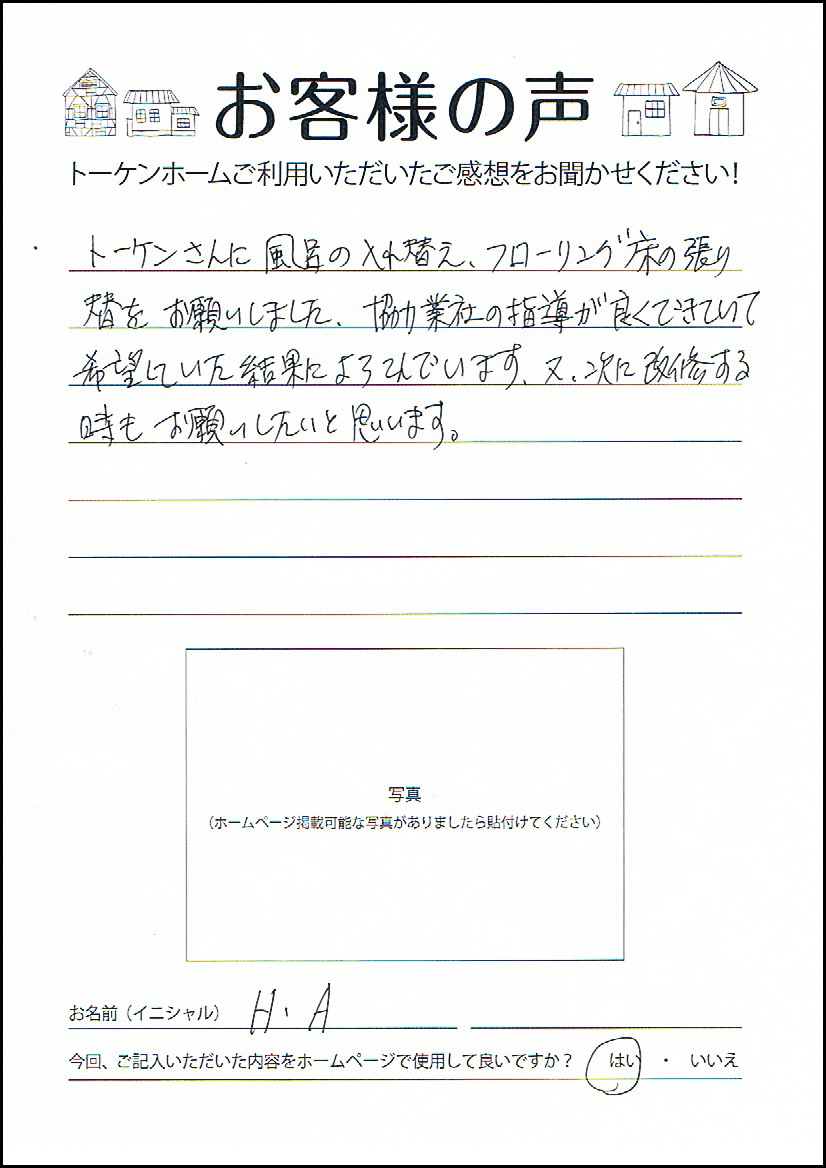 お客様の声
トーケンホームご利用いただいたご感想をお聞かせください！
トーケンさんに風呂の入れ替え、フローリング床の張り
替をお願いしました、協力業社の指導が良くできていて
希望していた結果によろこんでいます、又、次に改修する
時もお願いしたいと思います。
写真
（ホームページ掲載可能な写真がありましたら貼付けてください）
お名前（イニシャル） H・A
今回、ご記入いただいた内容をホームページで使用して良いですか？ はい ・ いいえ